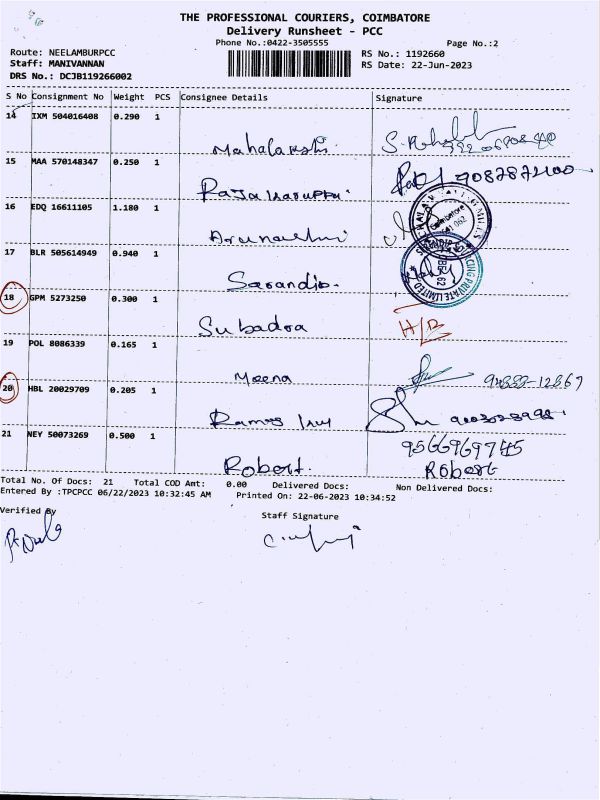 THE PROFESSIONAL COURIERS, COIMBATORE
Delivery Runsheet - PCC
Phone No.:0422-3505555
Page No.:2
Route: NEELAMBURPCC
RS No.: 1192660
Staff: MANIVANNAN
RS Date: 22-Jun-2023
DRS No.: DCJB119266002
S No Consignment No Weight PCS Consignee Details Signature
14 IXM 504016408 0.290 1
Mahalakshi.
15 MAA 570148347 0.250 1
9087872100
16 EDQ 16611105 1.180 1
Coimbatore
17 BLR 505614949 0.940 1
PRIVATE LIMITED
Sarandip.
18 GPM 5273250 0.300 1
Subadra H/B
19 POL 8086339 0.165 1
Meena
20 HBL 20029709 0.205 1
21 NEY 50073269 0.500 1
9566969745
Robert. Robert
Total No. Of Docs: 21 Total COD Amt: 0.00 Delivered Docs: Non Delivered Docs:
Entered By :TPCPCC 06/22/2023 10:32:45 AM Printed On: 22-06-2023 10:34:52
Verified By
Staff Signature